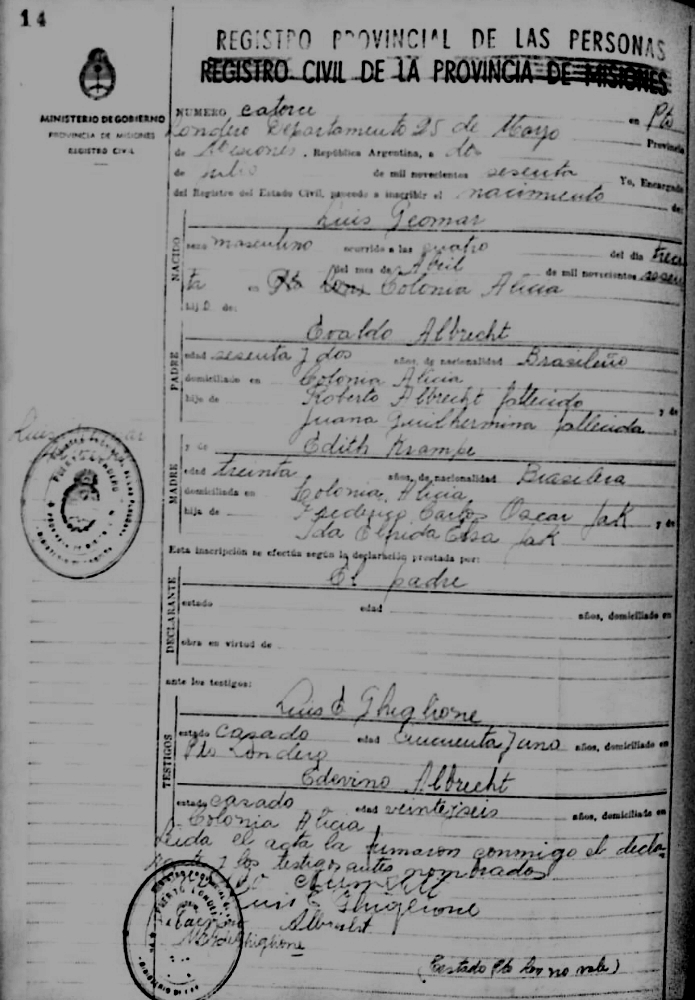 14
REGISTRO PROVINCIAL DE LAS PERSONAS
REGISTRO CIVIL DE LA PROVINCIA DE MISIONES
MINISTERIO DE GOBIERNO
PROVINCIA DE MISIONES
REGISTRO CIVIL
NUMERO catorce en Pto
Londero Departamento 25 de Mayo Provincia
de Misiones, República Argentina, a
de julio de mil novecientos sesenta Yo, Encargado
del Registro del Estado Civil, procedo a inscribir el nacimiento de:
NACIDO
Luis Geomar
sexo masculino ocurrido a las cuatro del día trein
ta del mes de Abril de mil novecientos sesen
ta en Pto Lon Colonia Alicia
hij o de:
PADRE
Evaldo Albrecht
edad sesenta y dos años, de nacionalidad Brasileño
domiciliado en Colonia Alicia
hijo de Roberto Albrecht fallecido y de
Juana Guilhermina fallecida
MADRE
y de Edith Krampe
edad treinta años, de nacionalidad Brasilera
domiciliada en Colonia Alicia
hija de Frederico Carlos Oscar Jak y de
Ida Elfrida Elsa Jak
Esta inscripción se efectúa según la declaración prestada por:
DECLARANTE
El padre
estado edad años, domiciliado en
obra en virtud de
ante los testigos:
TESTIGOS
Luis E Ghiglione
estado casado edad cincuenta y uno años, domiciliado en
Pto Londero
Edevino Albrecht
estado casado edad veinte y seis años, domiciliado en
Colonia Alicia
Leida el acta la firmaron conmigo el decla-
rante y los testigos antes nombrados
Luis E Ghiglione
Albrecht
(Testado Pto Lon no vale)